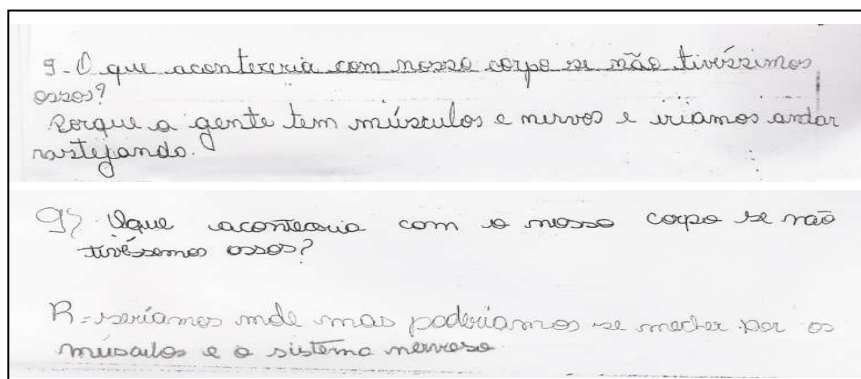 9-O que aconteceria com nosso corpo se não tivéssimos
ossos?
Porque a gente tem músculos e nervos e iriamos andar
rastejando.
9) Oque aconteceria com o nosso corpo se não
tivéssemos ossos?
R-seríamos mole mas poderiamos se mecher por os
músculos e o sistema nervoso